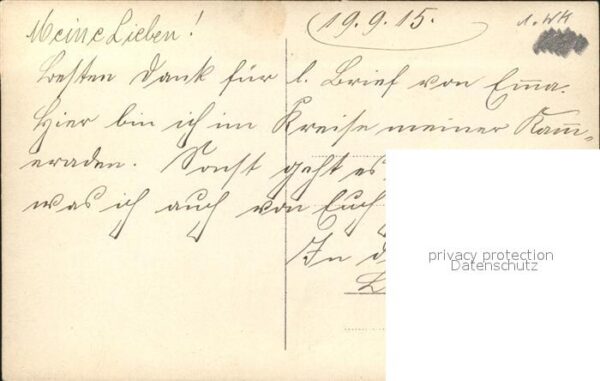 Meine Lieben!
19. 9. 15.
1. WK
Besten Dank für l. Brief von Emma.
Hier bin ich im Kreise meiner Kam̅-
eraden. Sonst geht es
was ich auch von Euch
In
privacy protection
Datenschutz